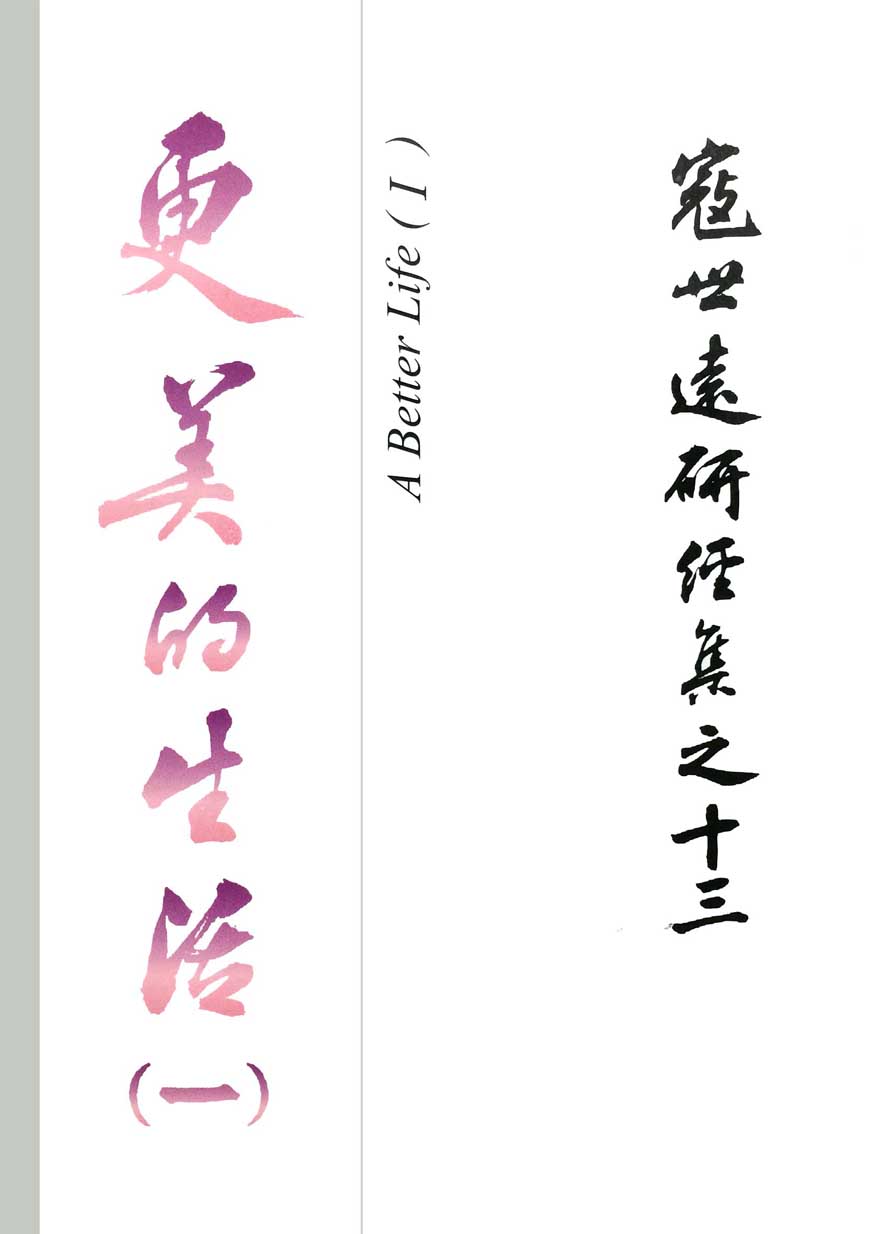 寇世遠研經集之十三
A Better Life ( I )
更美的生活
(一)